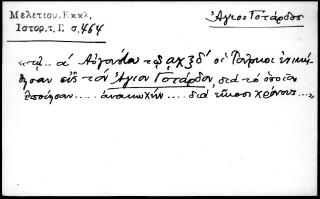 Μελετιου, Εκκλ.
Ιστορ. τ. Γ. σ. 464
Ἅγιος Γοτάρδος
«τῇ... α' Αὐγούστου τῷ αχξδ' οἱ Τοῦρκοι ἐνικήθησαν εἰς τὸν Ἅγιον Γοτάρδον, διὰ τὸ ὁποῖον
ἐποίησαν ..... ἀνακωχὴν ..... διὰ εἴκοσι χρόνους ...»